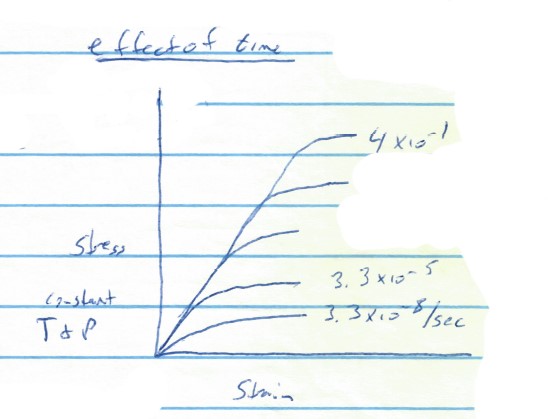 effect of time
4 x 10⁻¹
Stress
3.3 x 10⁻⁵
constant
3.3 x 10⁻⁸/sec
T & P
Strain